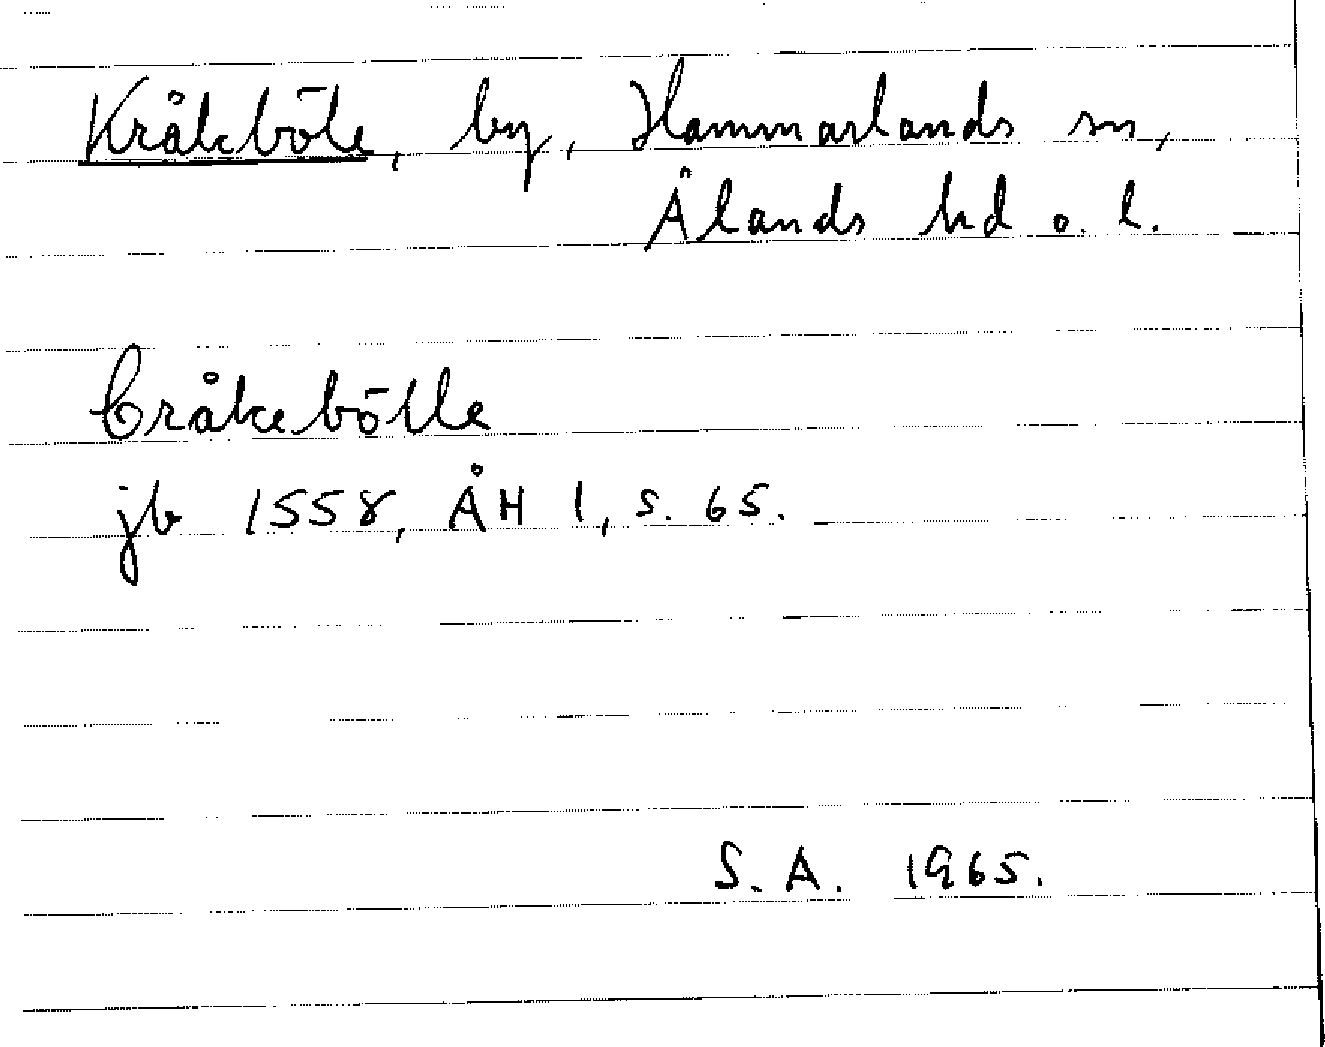 Kråkböle, by, Hammarlands sn,
Ålands hd o. l.
Cråkebölle
jb 1558, ÅH 1, s. 65.
S. A. 1965.